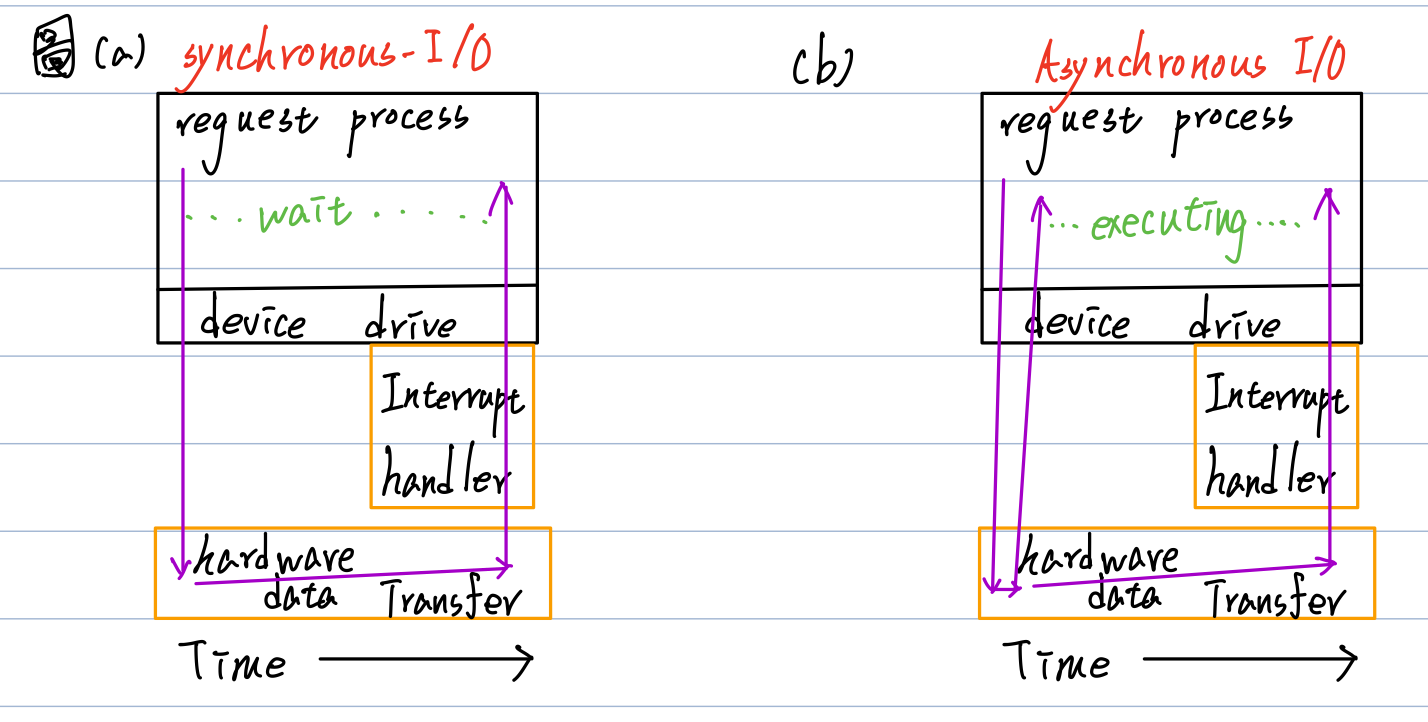 圖 (a) synchronous-I/O
request process
...wait......
device drive
Interrupt
handler
hardware
data Transfer
Time
(b) Asynchronous I/O
request process
...executing....
device drive
Interrupt
handler
hardware
data Transfer
Time